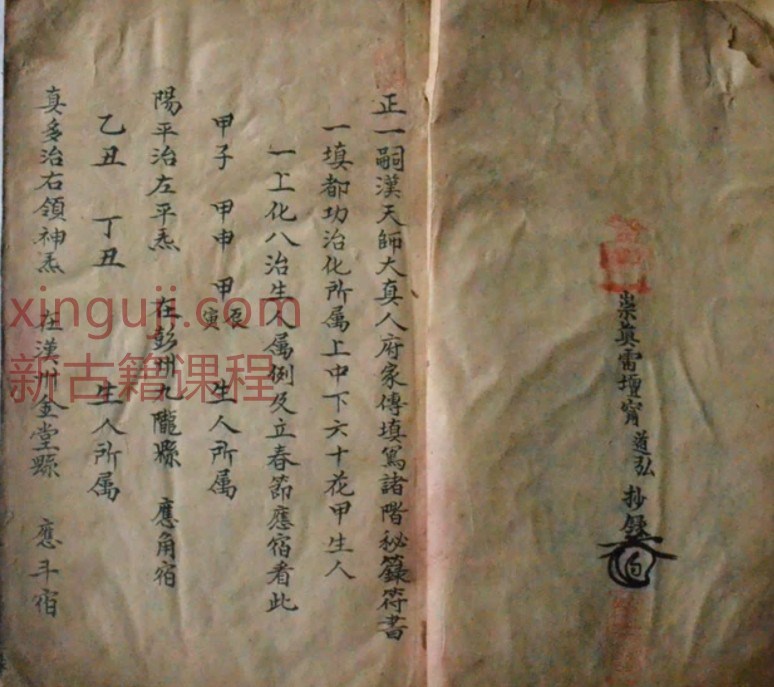 崇真雷壇甯道弘抄錄
正一嗣漢天師大真人府家傳填寫諸階秘籙符書
一填都功治化所属上中下六十花甲生人
一上化八治生人属例及立春節應宿看此
甲子 甲申 甲寅辰 生人所属
陽平治左平炁 在彭州九隴縣 應角宿
乙丑 丁丑 生人所属
真多治右領神炁 在漢州金堂縣 應斗宿
xinguji.com
新古籍课程